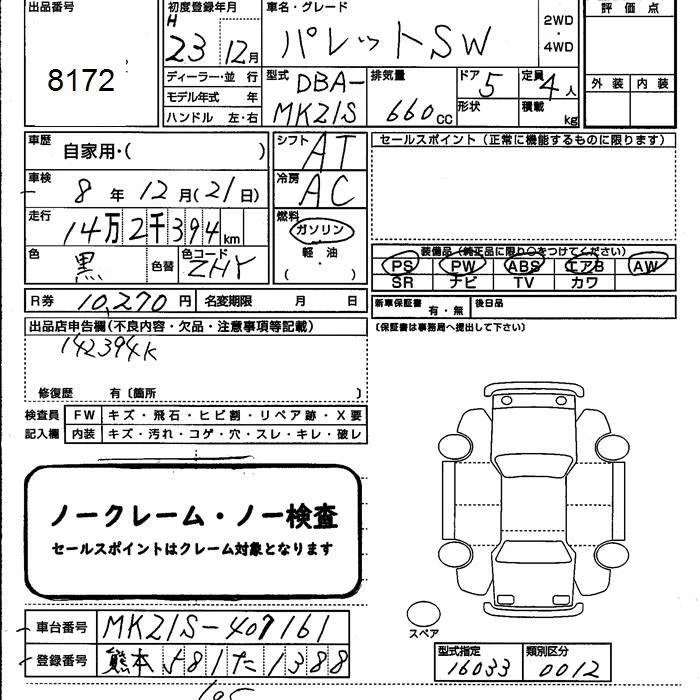 出品番号
8172
初度登録年月
H
23 12月
車名・グレード
パレットSW
2WD
・
4WD
評価点
外装 内装
ディーラー・並 行
モデル年式 年
ハンドル 左・右
型式 DBA-
MK21S
排気量
660cc
ドア 5
形状
定員 4人
積載 kg
車歴
自家用・( )
車検
8年12月(21日)
走行
14万2千394km
色
黒
色替
色コード
ZHY
シフト
AT
冷房
AC
燃料
ガソリン
軽・油
( ・ )
セールスポイント (正常に機能するものに限ります)
装備品(純正品に限り○をつけてください)
PS PW ABS エアB AW
SR ナビ TV カワ
R券 10,270円 名変期限 月 日
新車保証書 有・無 後日品
(保証書は事務局へ提出して下さい)
出品店申告欄(不良内容・欠品・注意事項等記載)
142394K
修復歴 有〔箇所 〕
検査員 FW キズ・飛石・ヒビ割・リペア跡・X要
記入欄 内装 キズ・汚れ・コゲ・穴・スレ・キレ・破レ
ノークレーム・ノー検査
セールスポイントはクレーム対象となります
スペア
車台番号 MK21S-407161
登録番号 熊本581た1388
型式指定 16033
類別区分 0012